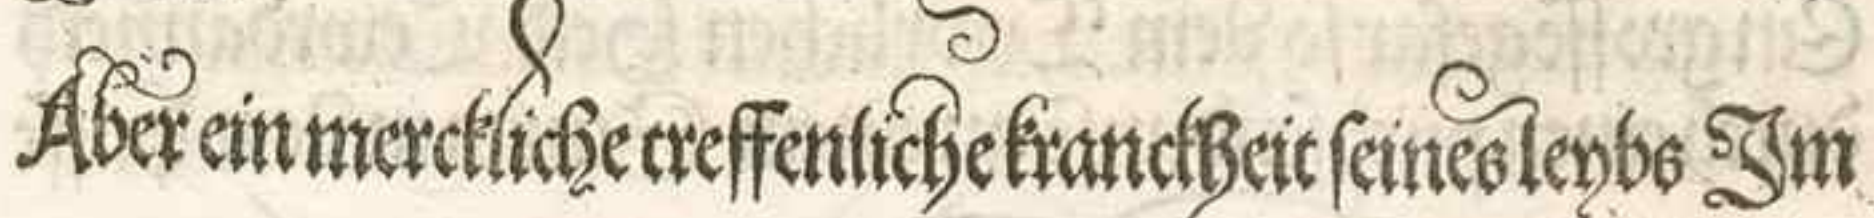 Aber ein merckliche treffenliche kranckheit seines leybs Im